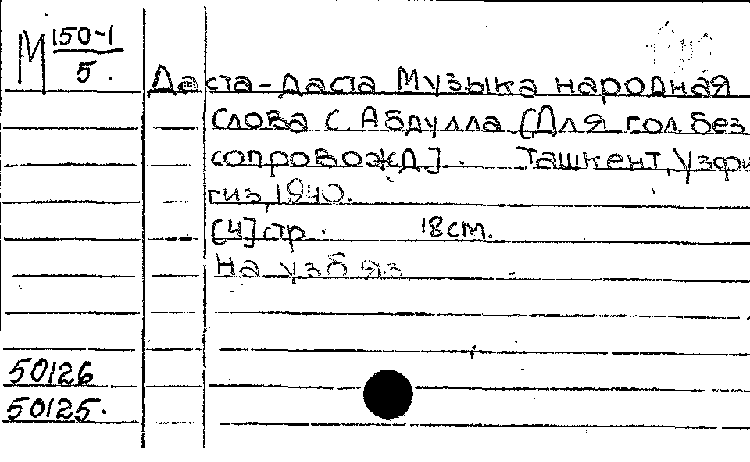 М 150-1
5.
Даста-даста Музыка народная
Слова С. Абдулла [Для гол. без
сопровожд]. Ташкент, Узфи
гиз, 1940.
[4] стр. 18 cm.
На узб яз
50126
50125.